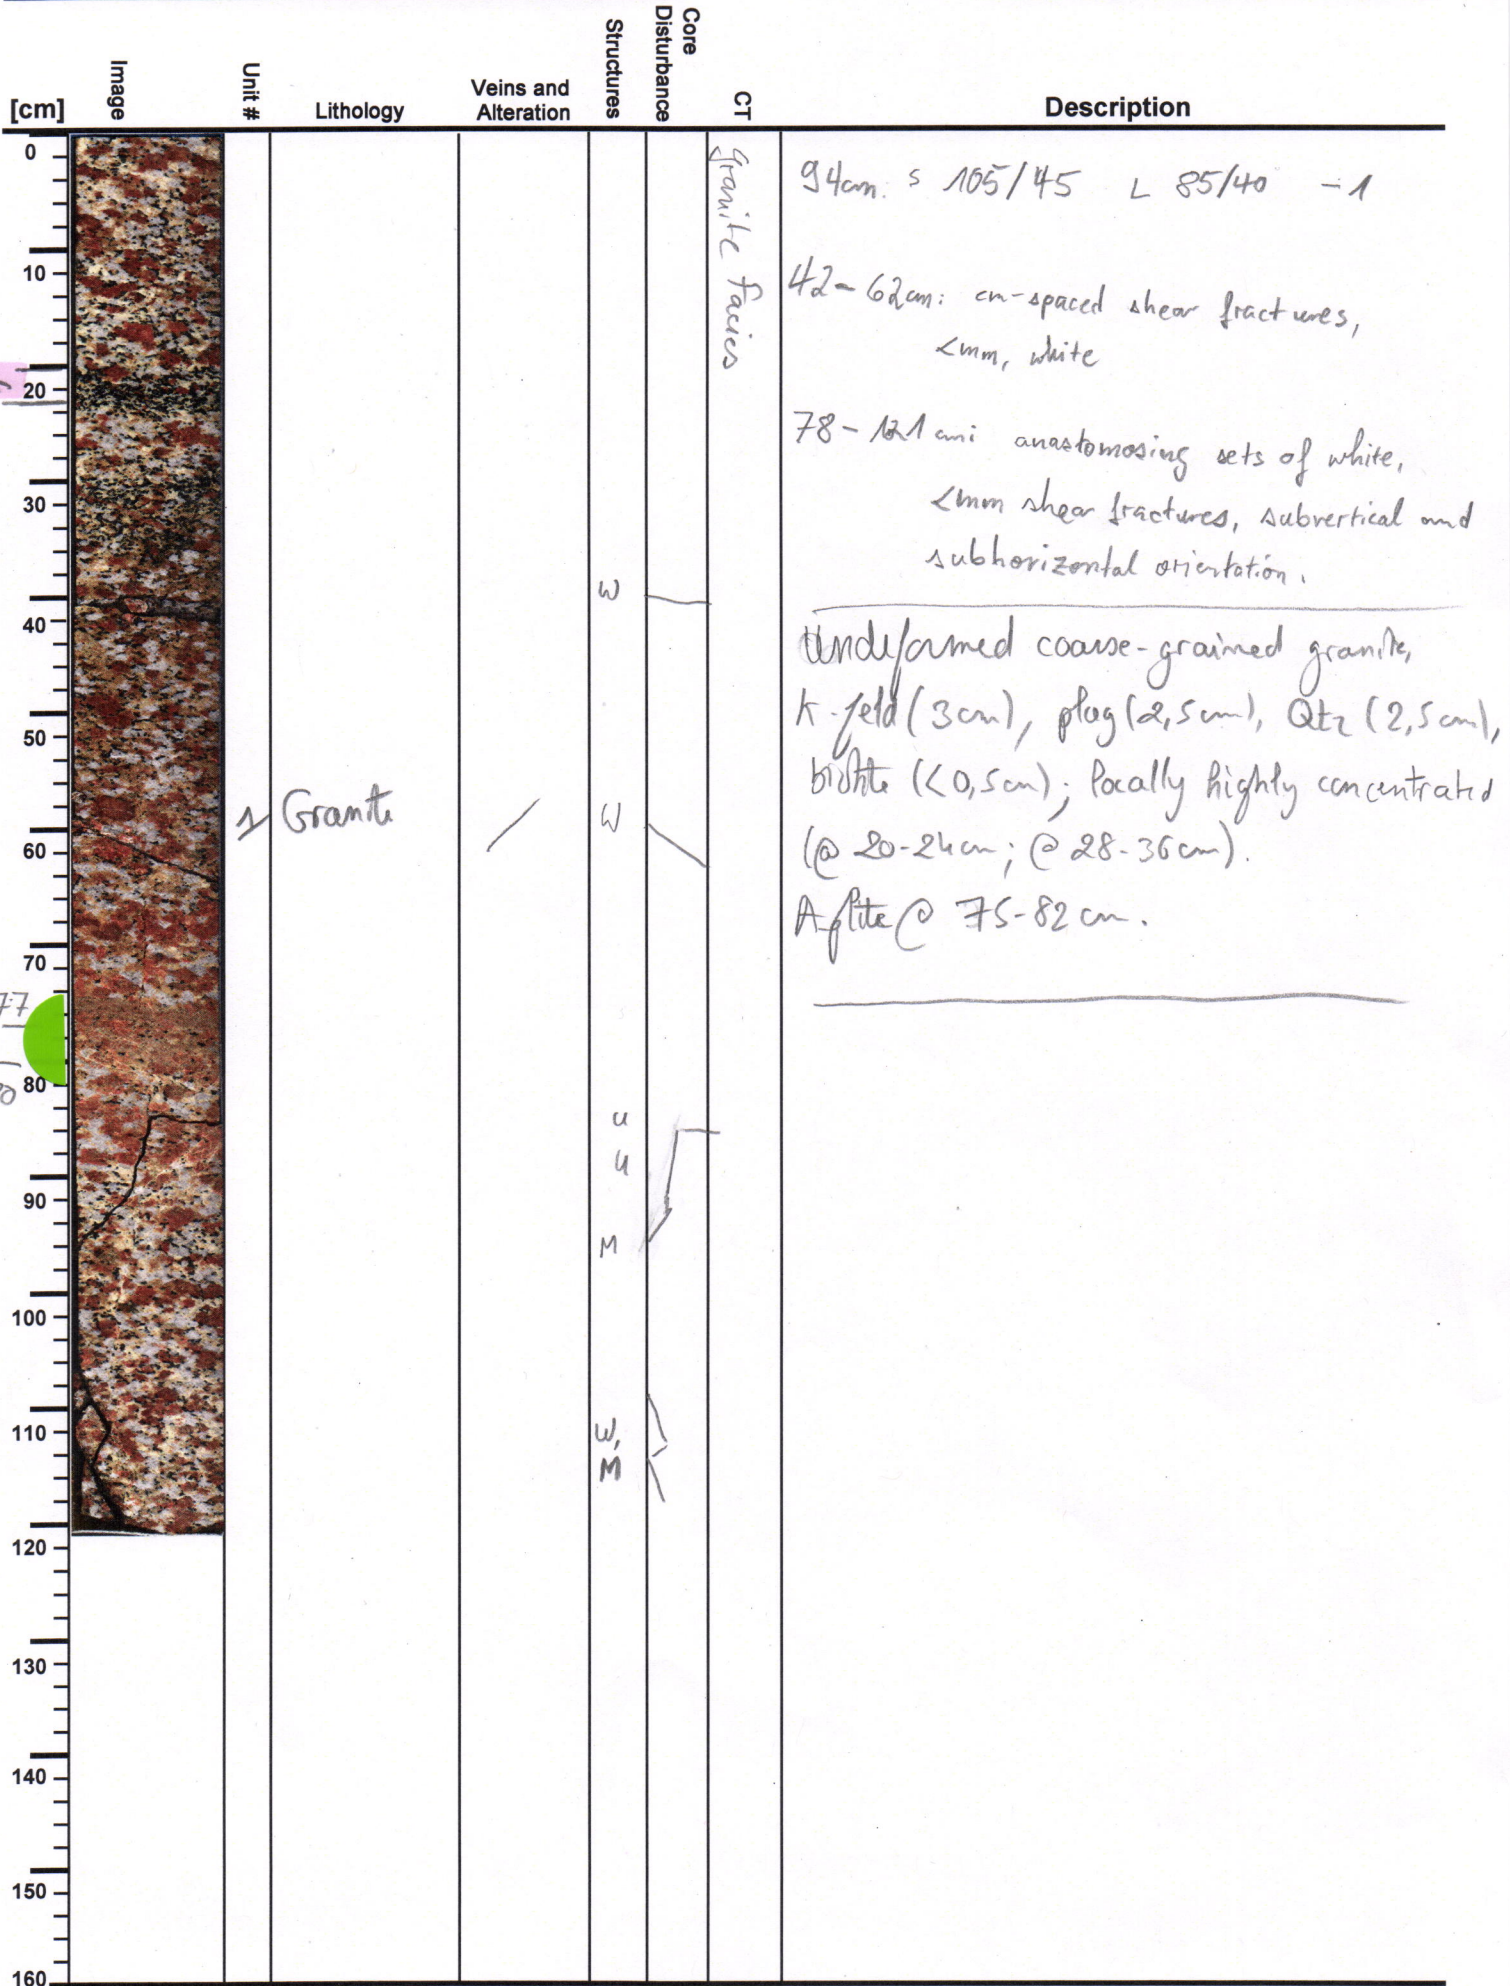 [cm]
Image
Unit #
Lithology
Veins and
Alteration
Structures
Core
Disturbance
CT
Description
0
10
20
30
40
50
60
70
80
90
100
110
120
130
140
150
160
77
1
Granite
W
W
u
u
M
W,
M
Granite facies
94cm: s 105/45 L 85/40 -1
42-62cm: cm-spaced shear fractures,
<mm, white
78-121cm: anastomosing sets of white,
<mm shear fractures, subvertical and
subhorizontal orientation.
Undeformed coarse-grained granite,
K-feld (3cm), plag (2,5cm), Qtz (2,5cm),
biotite (<0,5cm); locally highly concentrated
(@ 20-24cm; @ 28-36cm).
Aplite @ 75-82cm.